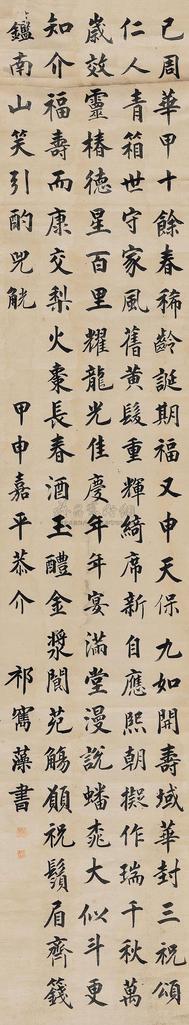 已周華甲十餘春稀齡誕期福又申天保九如開壽域華封三祝頌
仁人青箱世守家風舊黃髮重輝綺席新自應熙朝擬作瑞千秋萬
歲效靈椿德星百里耀龍光佳慶年年宴滿堂漫說蟠桃大似斗更
知介福壽而康交梨火棗長春酒玉醴金漿閬苑觴願祝鬚眉齊籛
鑑南山笑引酌兕觥
甲申嘉平恭介 祁寯藻書